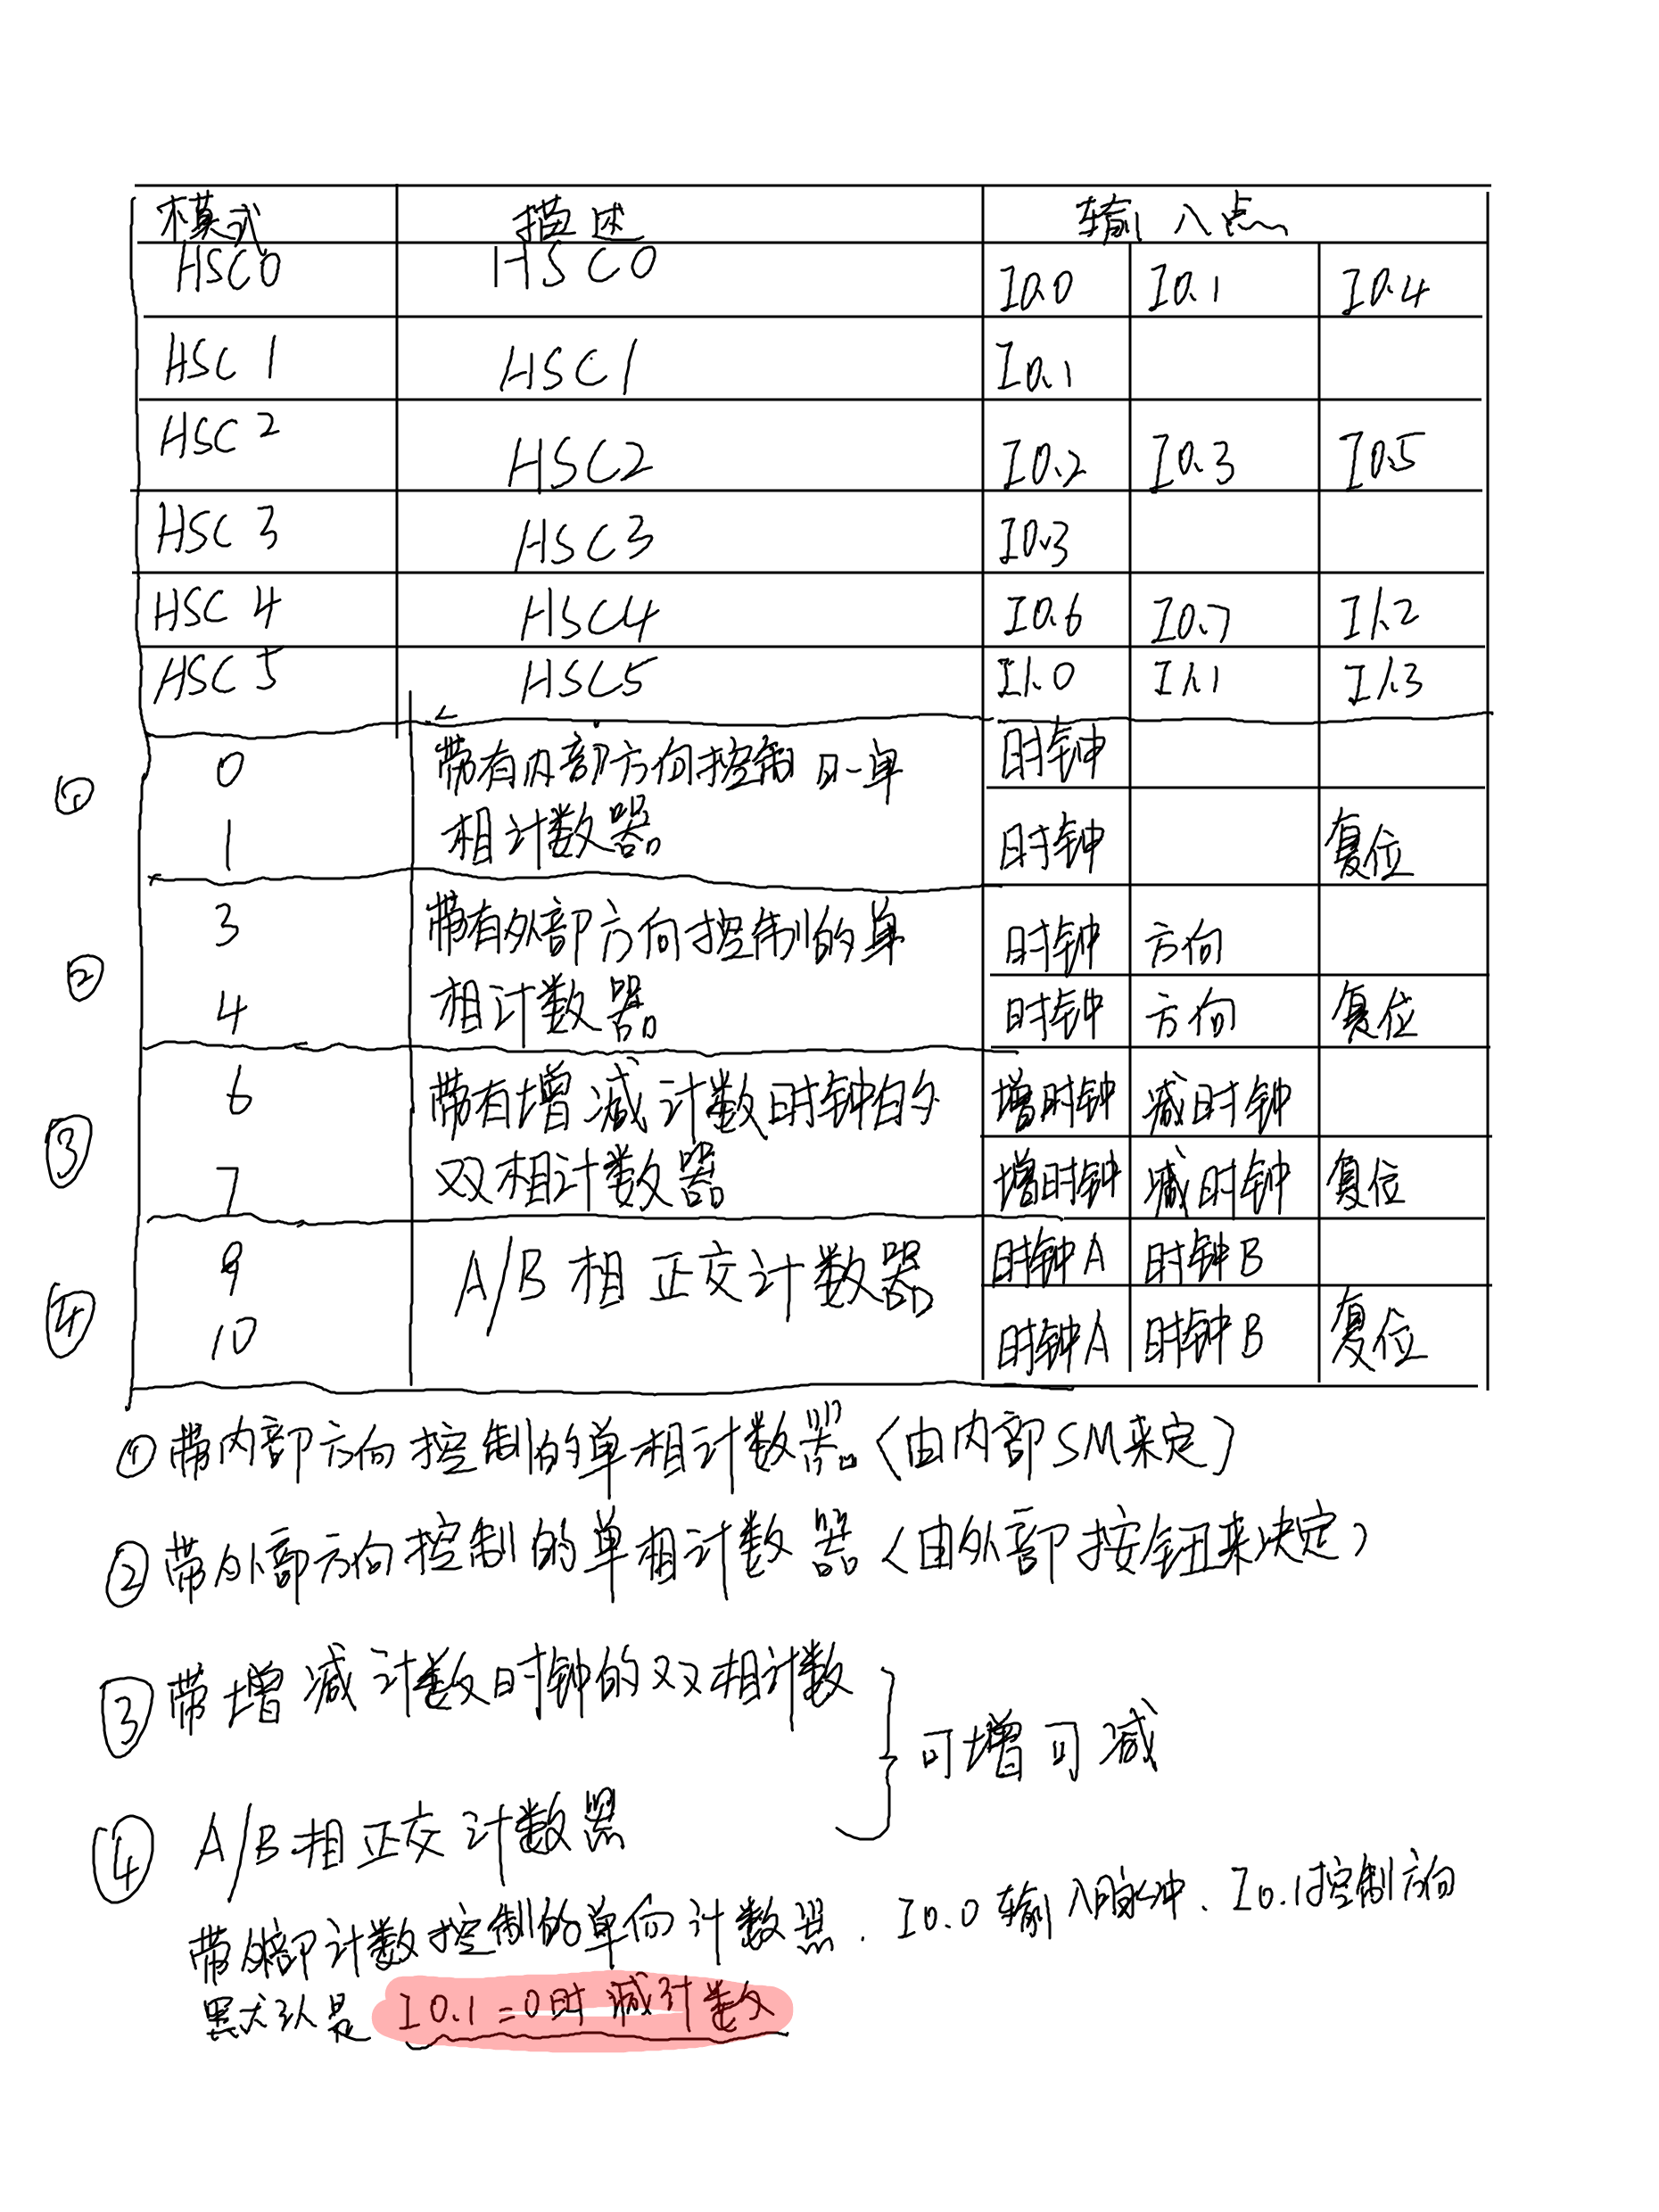 模式 描述 输入点
HSC0 HSC0 I0.0 I0.1 I0.4
HSC1 HSC1 I0.1
HSC2 HSC2 I0.2 I0.3 I0.5
HSC3 HSC3 I0.3
HSC4 HSC4 I0.6 I0.7 I1.2
HSC5 HSC5 I1.0 I1.1 I1.3
① 0 带有内部方向控制日一单 时钟
1 相计数器。 时钟 复位
② 3 带有外部方向控制的单 时钟 方向
4 相计数器。 时钟 方向 复位
③ 6 带有增减计数时钟的 增时钟 减时钟
7 双相计数器。 增时钟 减时钟 复位
④ 9 A/B相正交计数器 时钟A 时钟B
10 时钟A 时钟B 复位
①带内部方向控制的单相计数器。(由内部SM来定)
②带外部方向控制的单相计数器(由外部按钮来决定)
③带增减计数时钟的双相计数
可增可减
④ A/B相正交计数器
带外部计数控制的单向计数器. I0.0输入脉冲、I0.1控制方向
默认是 I0.1=0时减计数